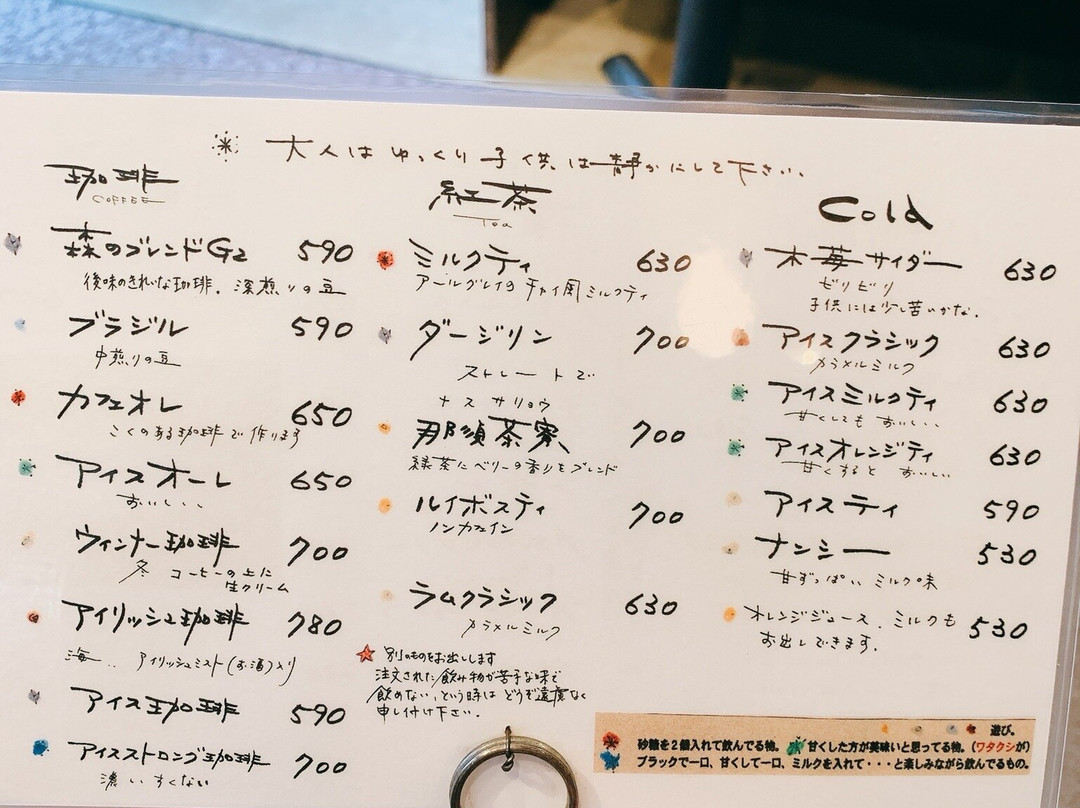 大人はゆっくり子供は静かにして下さい、
珈琲
COFFEE
森のブレンドG2 590
後味のきれいな珈琲、深煎りの豆
ブラジル 590
中煎りの豆
カフェオレ 650
こくのある珈琲で作ります
アイスオーレ 650
おいしい、、
ウィンナー珈琲 700
冬 コーヒーの上に
生クリーム
アイリッシュ珈琲 780
海.. アイリッシュミスト(お酒)入り
アイス珈琲 590
アイスストロング珈琲 700
濃い すくない
紅茶
Tea
ミルクティ 630
アールグレイのチャイ風ミルクティ
ダージリン 700
ストレートで
ナスサリョウ
那須茶寮 700
緑茶にベリーの香りをブレンド
ルイボスティ 700
ノンカフェイン
ラムクラシック 630
カラメルミルク
別のものをお出しします
注文された飲み物が苦手な味で
飲めない、という時は どうぞ遠慮なく
申し付け下さい。
Cold
木苺サイダー 630
ビリビリ
子供には少し苦いかな。
アイスクラシック 630
カラメルミルク
アイスミルクティ 630
甘くしても おいしい、
アイスオレンジティ 630
甘くすると おいしい
アイスティ 590
ナンシー 530
甘ずっぱい ミルク味
オレンジジュース、ミルクも 530
お出しできます。
遊び。
砂糖を2個入れて飲んでる物。 甘くした方が美味いと思ってる物。(ワタクシが)
ブラックで一口、甘くして一口、ミルクを入れて・・・と楽しみながら飲んでるもの。